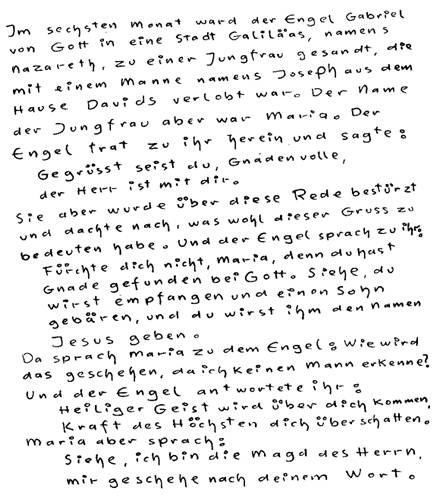 Im sechsten Monat ward der Engel Gabriel
von Gott in eine Stadt Galiläas, namens
Nazareth, zu einer Jungfrau gesandt, die
mit einem Manne namens Joseph aus dem
Hause Davids verlobt war. Der Name
der Jungfrau aber war Maria. Der
Engel trat zu ihr herein und sagte:
Gegrüsst seist du, Gnadenvolle,
der Herr ist mit dir.
Sie aber wurde über diese Rede bestürzt
und dachte nach, was wohl dieser Gruss zu
bedeuten habe. Und der Engel sprach zu ihr:
Fürchte dich nicht, Maria, denn du hast
Gnade gefunden bei Gott. Siehe, du
wirst empfangen und einen Sohn
gebären, und du wirst ihm den Namen
Jesus geben.
Da sprach Maria zu dem Engel: Wie wird
das geschehen, da ich keinen Mann erkenne?
Und der Engel antwortete ihr:
Heiliger Geist wird über dich kommen,
Kraft des Höchsten dich überschatten.
Maria aber sprach:
Siehe, ich bin die Magd des Herrn,
mir geschehe nach deinem Wort.